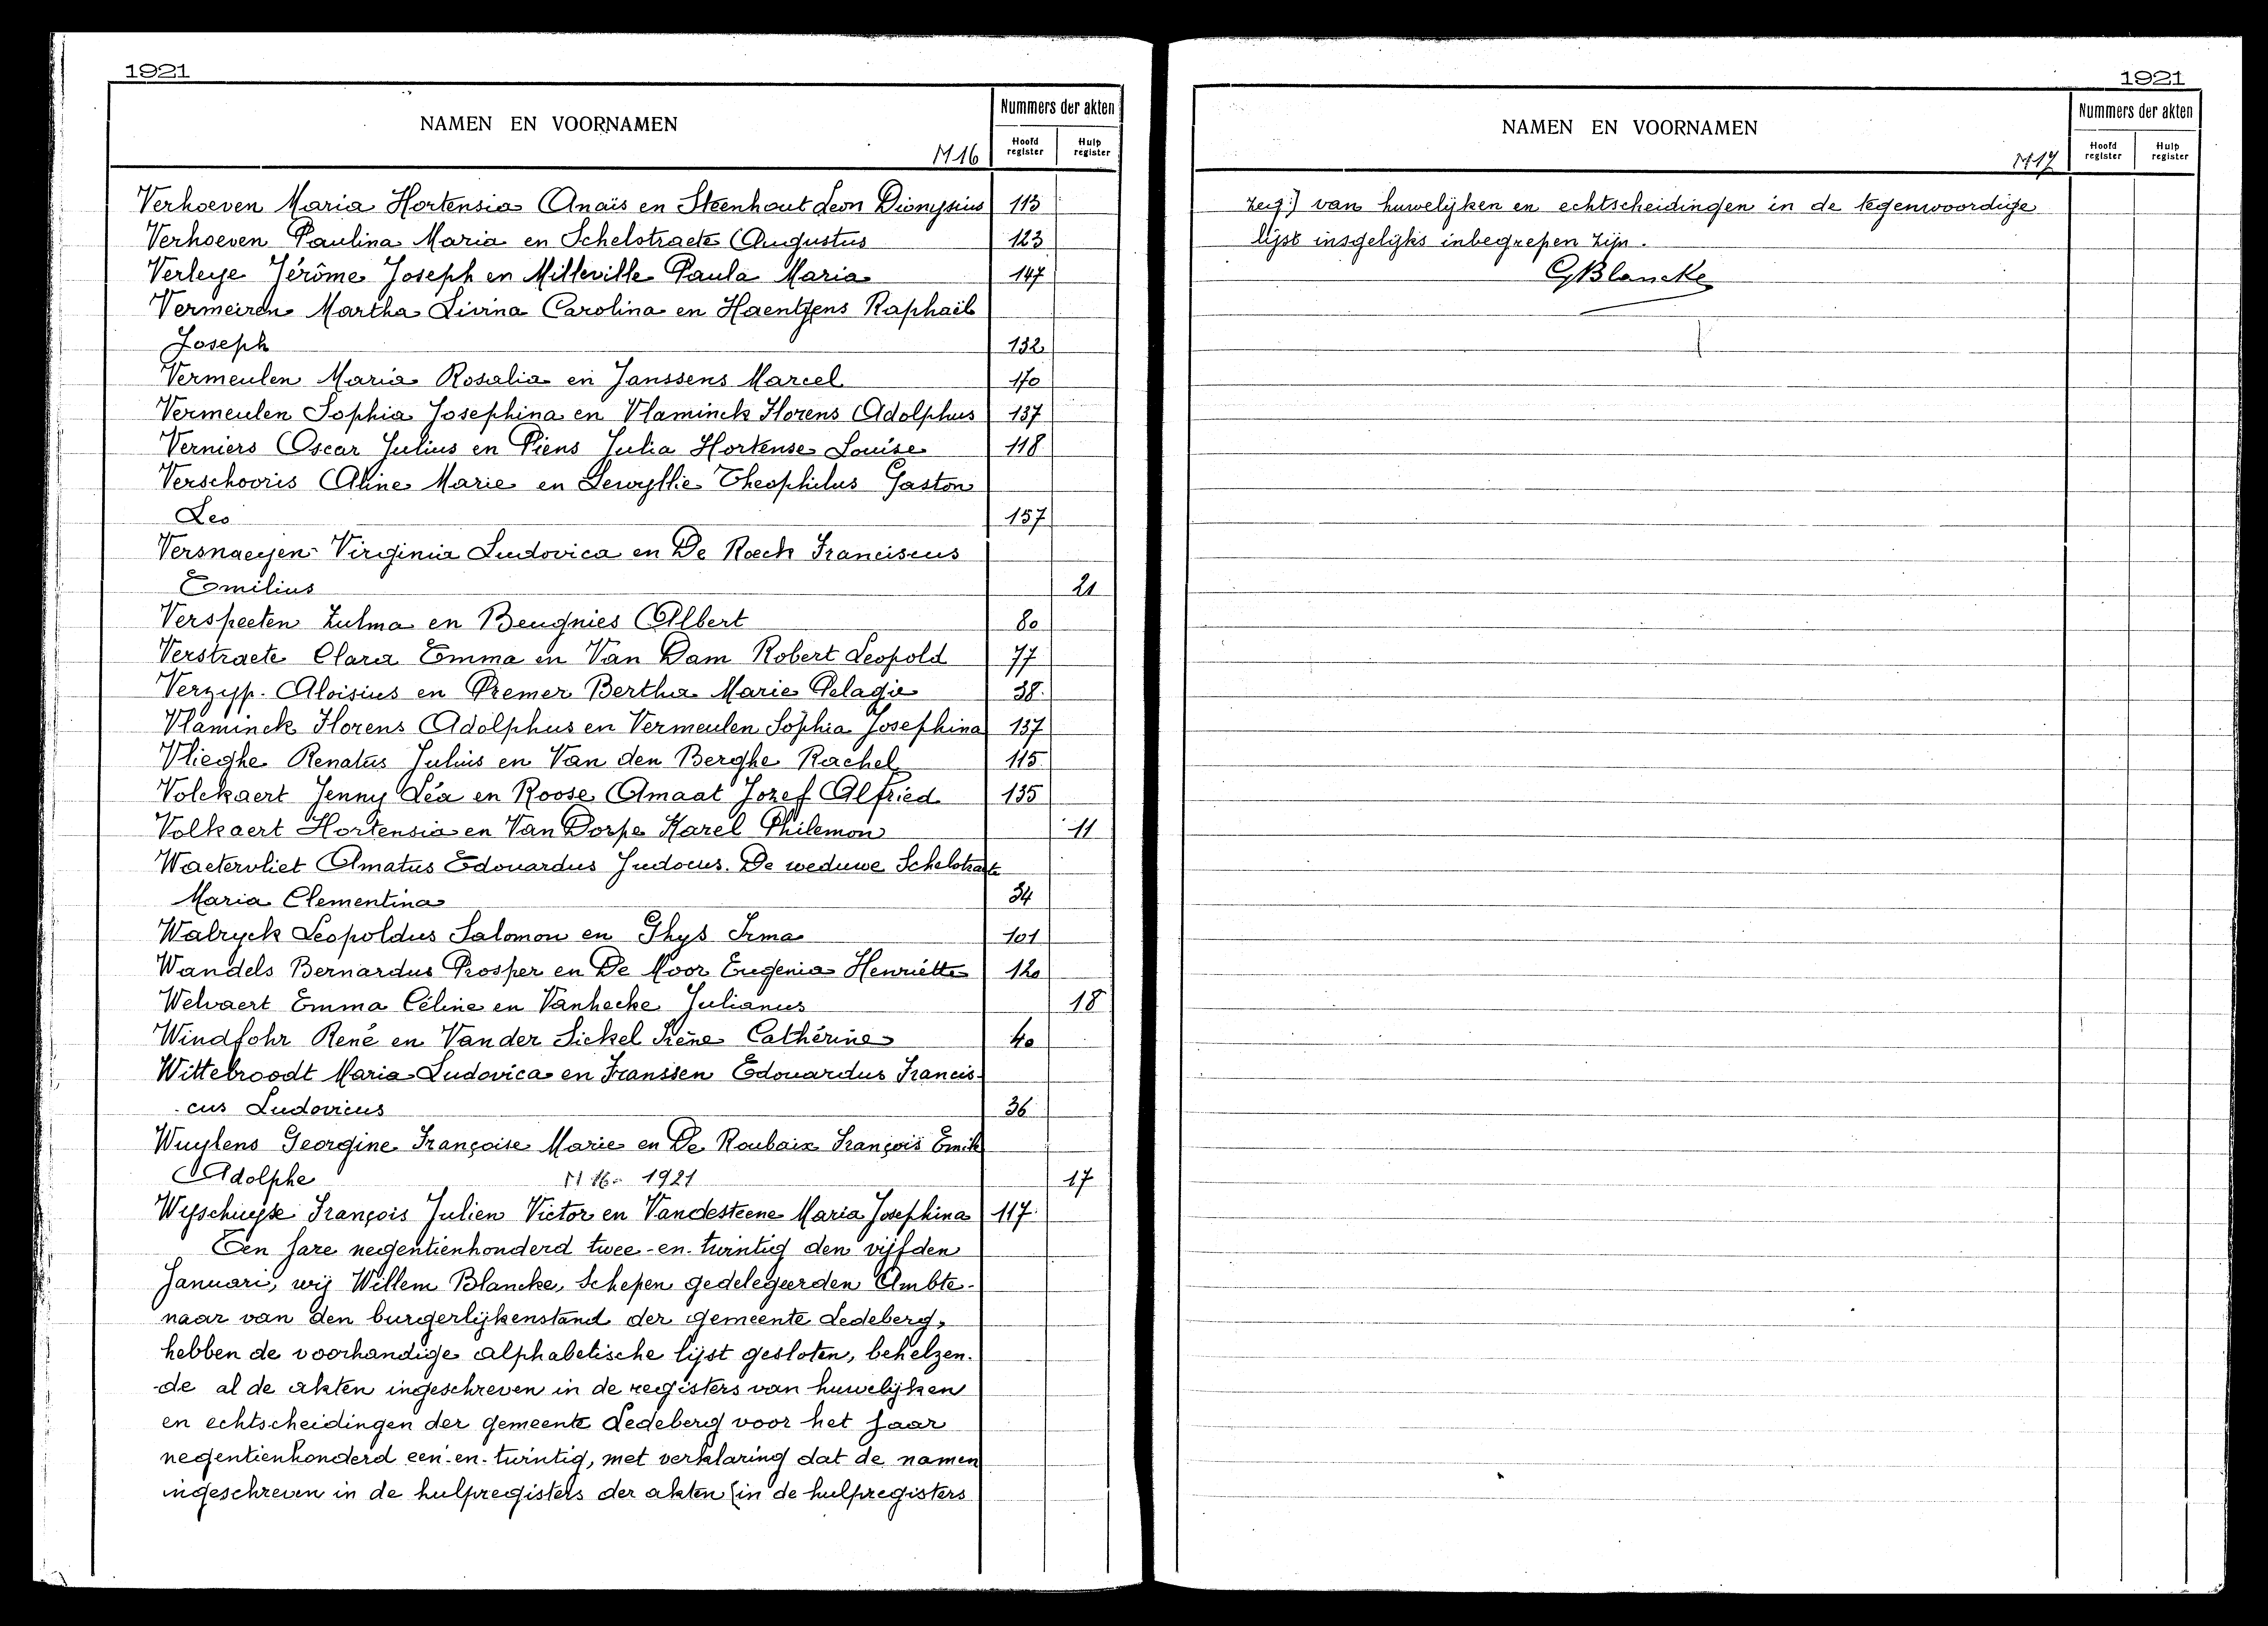 1921
NAMEN EN VOORNAMEN
M16
Nummers der akten
Hoofd register
Hulp register
Verhoeven Maria Hortensia Anaïs en Steenhaut Leon Dionysius 113
Verhoeven Paulina Maria en Schelstraete Augustus 123
Verleye Jérôme Joseph en Milleville Paula Maria 147
Vermeiren Martha Livina Carolina en Haentjens Raphaël
Joseph 132
Vermeulen Maria Rosalia en Janssens Marcel 170
Vermeulen Sophia Josephina en Vlaminck Florens Adolphus 137
Verniers Oscar Julius en Piens Julia Hortense Louise 118
Verschooris Aline Marie en Lewyllie Theophilus Gaston
Leo 157
Versnaeyen Virginia Ludovica en De Roeck Franciscus
Emilius 21
Verspeeten Zulma en Beugnies Albert 80
Verstraete Clara Emma en Van Dam Robert Leopold 77
Verzyp Aloisius en Premer Bertha Marie Pelagie 38
Vlaminck Florens Adolphus en Vermeulen Sophia Josephina 137
Vlieghe Renatus Julius en Van den Berghe Rachel 115
Volckaert Jenny Léa en Roose Amaat Jozef Alfried 135
Volkaert Hortensia en Van Dorpe Karel Philemon 11
Waetervliet Amatus Edouardus Judocus. De weduwe Schelstraete
Maria Clementina 34
Walryck Leopoldus Salomon en Ghys Irma 101
Wandels Bernardus Prosper en De Moor Eugenia Henriëtte 120
Welvaert Emma Céline en Vanhecke Julianus 18
Windfohr René en Vander Sickel Irène Cathérine 40
Wittebroodt Maria Ludovica en Franssen Edouardus Francis-
cus Ludovicus 36
Wuylens Georgine Françoise Marie en De Roubaix François Emile
Adolphe M 16. 1921 17
Wyschuyse François Julien Victor en Vandesteene Maria Josephina 117
Ten Jare negentienhonderd twee-en-twintig den vijfden
Januari, wij Willem Blancke, Schepen gedelegeerden Ambte-
naar van den burgerlijkenstand der gemeente Ledeberg,
hebben de voorhandige alphabetische lijst gesloten, behelzen-
de al de akten ingeschreven in de registers van huwelijken
en echtscheidingen der gemeente Ledeberg voor het Jaar
negentienhonderd een-en-twintig, met verklaring dat de namen
ingeschreven in de hulpregisters der akten (in de hulpregisters
1921
NAMEN EN VOORNAMEN
M17
Nummers der akten
Hoofd register
Hulp register
zeg:) van huwelijken en echtscheidingen in de tegenwoordige
lijst insgelijks inbegrepen zijn.
GBlancke